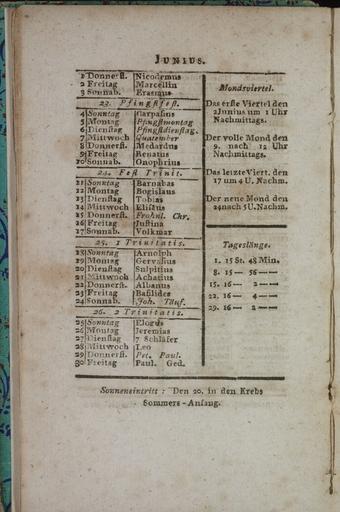 Junius.
1 Donnerſt. Nicodemus
2 Freitag Marcellin
3 Sonnab. Erasmus
23. Pfingſtfeſt.
4 Sonntag Carpaſius
5 Montag Pfingſtmontag
6 Dienſtag Pfingſtdienſtag.
7 Mittwoch Quatember
8 Donnerſt. Medardus
9 Freitag Renatus
10 Sonnab. Onophrius
24. Feſt Trinit.
11 Sonntag Barnabas
12 Montag Bogislaus
13 Dienſtag Tobias
14 Mittwoch Eliſäus
15 Donnerſt. Frohnl. Chr.
16 Freitag Juſtina
17 Sonnab. Volkmar
25. 1 Trinitatis.
18 Sonntag Arnolph
19 Montag Gervaſius
20 Dienſtag Sulpitius
21 Mittwoch Achatius
22 Donnerſt. Albanus
23 Freitag Baſilides
24 Sonnab. Joh. Täuf.
26. 2 Trinitatis.
25 Sonntag Elogius
26 Montag Jeremias
27 Dienſtag 7 Schläfer
28 Mittwoch Leo
29 Donnerſt. Pet. Paul.
30 Freitag Paul. Ged.
Mondsviertel.
Das erſte Viertel den
2 Junius um 1 Uhr
Nachmittags.
Der volle Mond den
9. nach 12 Uhr
Nachmittags.
Das letzte Viert. den
17 um 4 U. Nachm.
Der neue Mond den
24 nach 5 U. Nachm.
Tageslänge.
1. 15 St. 48 Min.
8. 15 — 56 —
15. 16 — 2 —
22. 16 — 4 —
29. 16 — 2 —
Sonneneintritt: Den 20. in den Krebs
Sommers-Anfang.